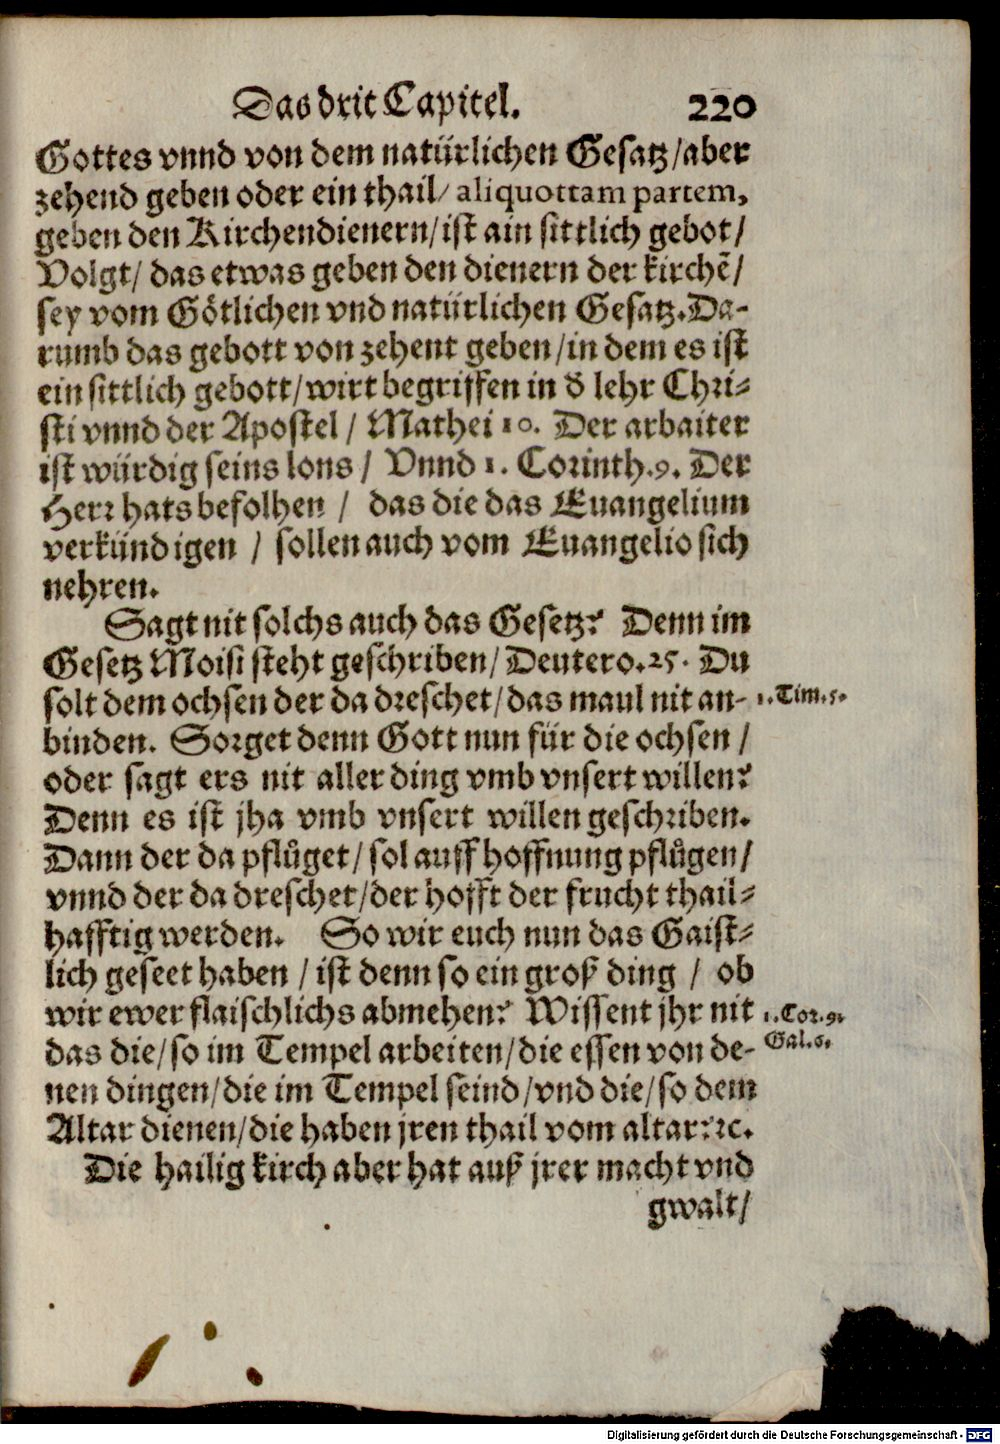 Das drit Capitel. 220
Gottes vnnd von dem natürlichen Gesatz/aber
zehend geben oder ein thail/ aliquottam partem,
geben den Kirchendienern/ist ain sittlich gebot/
Volgt/ das etwas geben den dienern der kirchẽ/
sey vom Götlichen vnd natürlichen Gesatz. Da-
rumb das gebott von zehent geben/in dem es ist
ein sittlich gebott/wirt begriffen in d̕ lehr Chri-
sti vnnd der Apostel / Mathei 10. Der arbaiter
ist würdig seins lons / Vnnd 1. Corinth.9. Der
Herr hats befolhen / das die das Euangelium
verkündigen / sollen auch vom Euangelio sich
nehren.
Sagt nit solchs auch das Gesetz? Denn im
Gesetz Moisi steht geschriben/ Deutero.25. Du
solt dem ochsen der da dreschet/das maul nit an- 1.Tim.5.
binden. Sorget denn Gott nun für die ochsen /
oder sagt ers nit aller ding vmb vnsert willen?
Denn es ist jha vmb vnsert willen geschriben.
Dann der da pflůget/sol auff hoffnung pflůgen/
vnnd der da dreschet/der hofft der frucht thail-
hafftig werden. So wir euch nun das Gaist-
lich geseet haben / ist denn so ein groß ding / ob
wir ewer flaischlichs abmehen? Wissent jhr nit 1.Cor.9.
das die/so im Tempel arbeiten/die essen von de- Gal.6.
nen dingen/die im Tempel seind/vnd die/so dem
Altar dienen/die haben jren thail vom altar? ꝛc.
Die hailig kirch aber hat auß jrer macht vnd
gwalt/
Digitalisierung gefördert durch die Deutsche Forschungsgemeinschaft - DFG